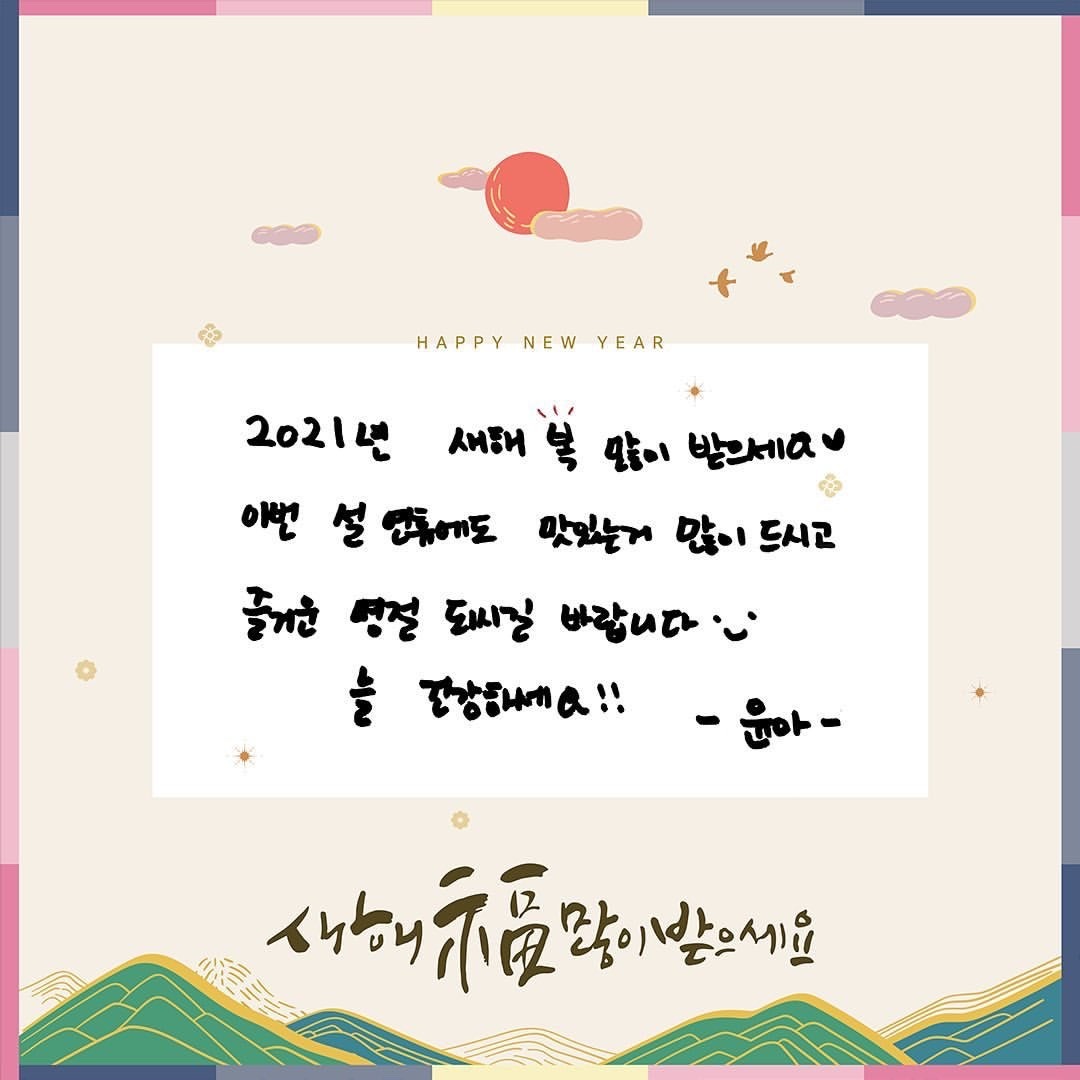 HAPPY NEW YEAR
2021년 새해 복 많이 받으세요♥
이번 설 연휴에도 맛있는거 많이 드시고
즐거운 명절 되시길 바랍니다
늘 건강하세요!!
- 윤아 -
새해 福 많이 받으세요